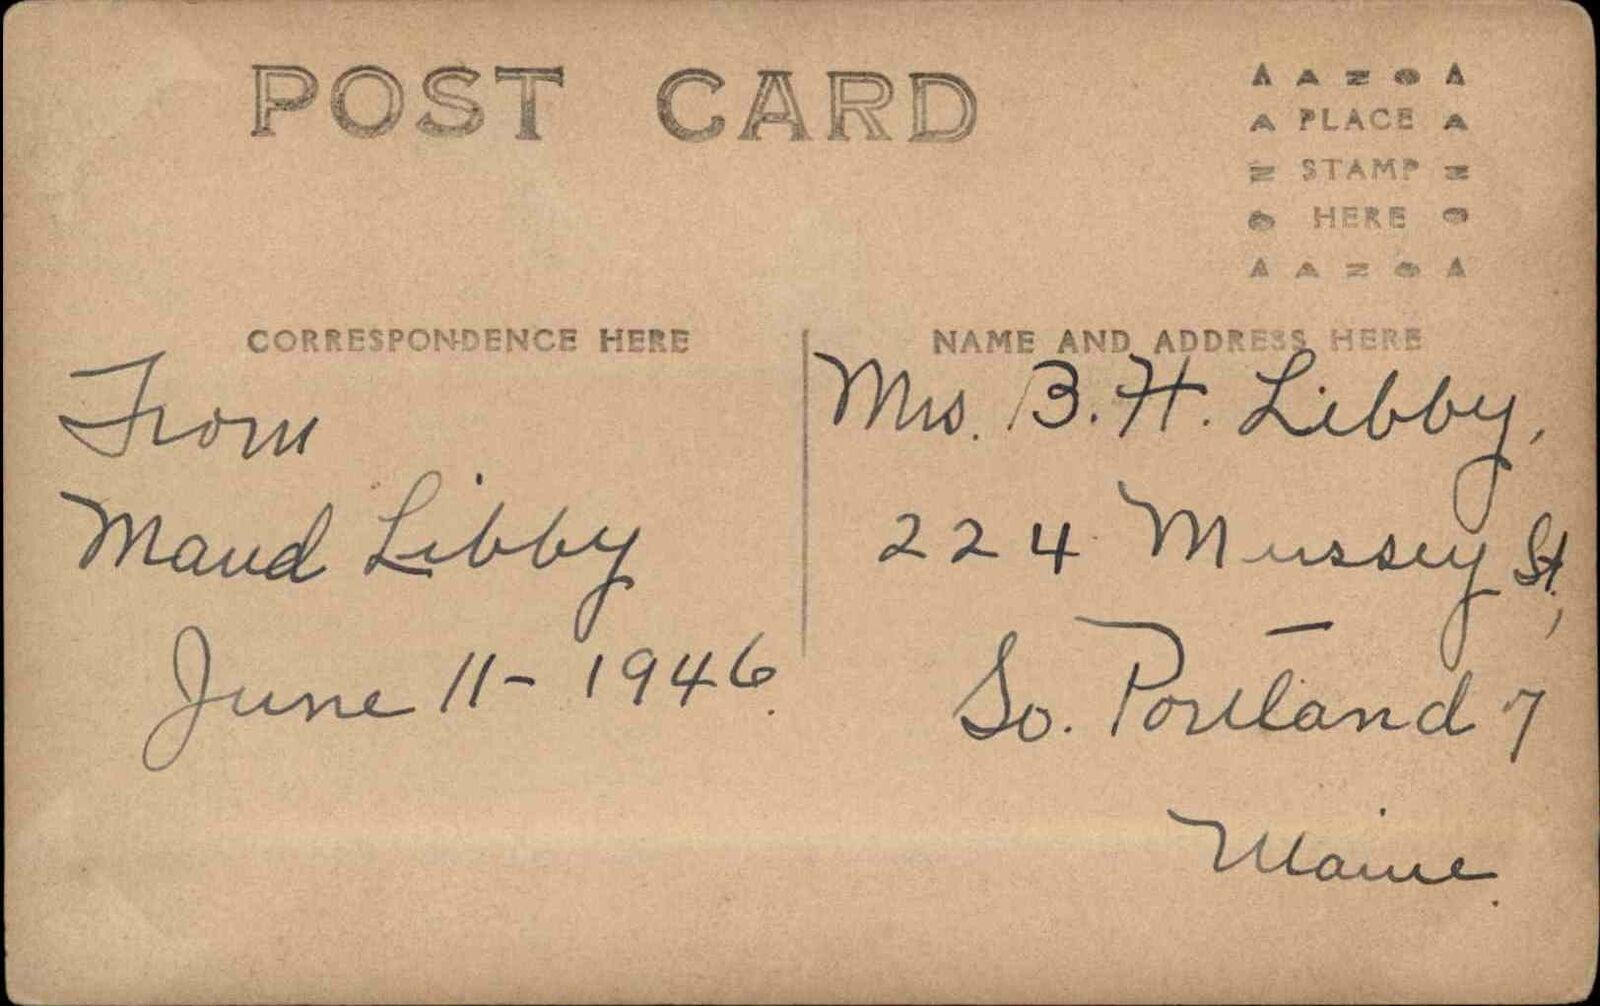 POST CARD
AZO
PLACE
STAMP
HERE
AZO
CORRESPONDENCE HERE
NAME AND ADDRESS HERE
From
Maud Libby
June 11 - 1946.
Mrs. B. H. Libby,
224 Mussey St.,
So. Portland 7
Maine.